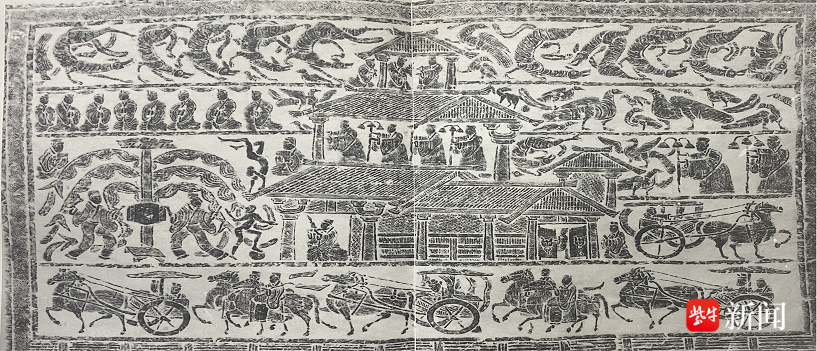 紫牛新闻